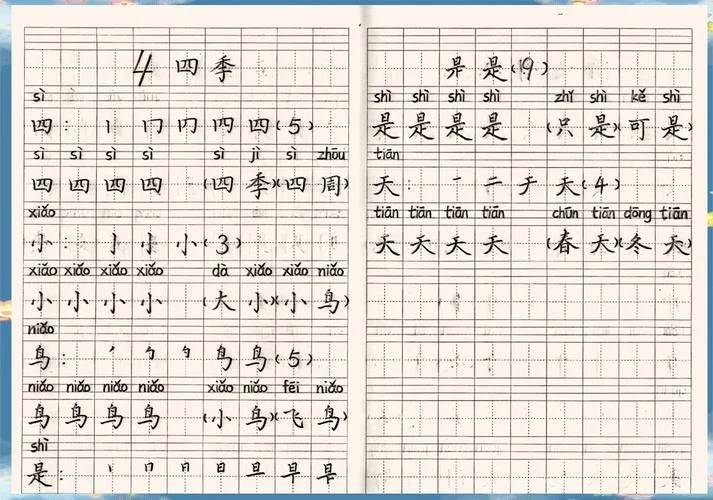 4 四季
sì
四: 丨 冂 冂 四 四(5)
sì sì sì sì sì jì sì zhōu
四 四 四 四 (四 季)(四 周)
xiǎo
小: 亅 小 小(3)
xiǎo xiǎo xiǎo xiǎo dà xiǎo xiǎo niǎo
小 小 小 小 (大 小)(小 鸟)
niǎo
鸟: 鸟 鸟(5)
niǎo niǎo niǎo niǎo xiǎo niǎo fēi niǎo
鸟 鸟 鸟 鸟 (小 鸟)(飞 鸟)
shì
是: 丨 日 日 日 旦 早
是(9)
shì shì shì shì zhǐ shì kě shì
是 是 是 是 (只 是)(可 是)
tiān
天: 一 二 于 天(4)
tiān tiān tiān tiān chūn tiān dōng tiān
天 天 天 天 (春 天)(冬 天)